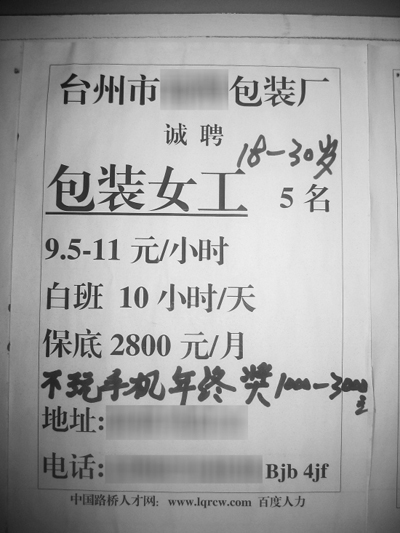 台州市 包装厂
诚聘
18-30岁
包装女工 5名
9.5-11 元/小时
白班 10 小时/天
保底 2800 元/月
不玩手机年终奖1000-3000元
地址:
电话: Bjb 4jf
中国路桥人才网: www.lqrcw.com 百度人力